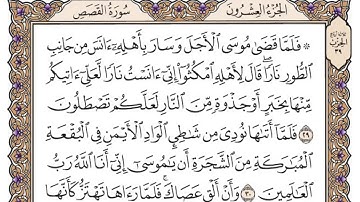 الجزء العشرون
سورة القصص
۞ فَلَمَّا قَضَىٰ مُوسَى ٱلْأَجَلَ وَسَارَ بِأَهْلِهِۦٓ ءَانَسَ مِن جَانِبِ
ٱلطُّورِ نَارًا قَالَ لِأَهْلِهِ ٱمْكُثُوٓا۟ إِنِّىٓ ءَانَسْتُ نَارًا لَّعَلِّىٓ ءَاتِيكُم
مِّنْهَا بِخَبَرٍ أَوْ جَذْوَةٍ مِّنَ ٱلنَّارِ لَعَلَّكُمْ تَصْطَلُونَ
٢٩ فَلَمَّآ أَتَىٰهَا نُودِىَ مِن شَـٰطِئِ ٱلْوَادِ ٱلْأَيْمَنِ فِى ٱلْبُقْعَةِ
ٱلْمُبَـٰرَكَةِ مِنَ ٱلشَّجَرَةِ أَن يَـٰمُوسَىٰٓ إِنِّىٓ أَنَا ٱللَّهُ رَبُّ
ٱلْعَـٰلَمِينَ ٣٠ وَأَنْ أَلْقِ عَصَاكَ فَلَمَّا رَءَاهَا تَهْتَزُّ كَأَنَّهَا
الحزب
٣٩